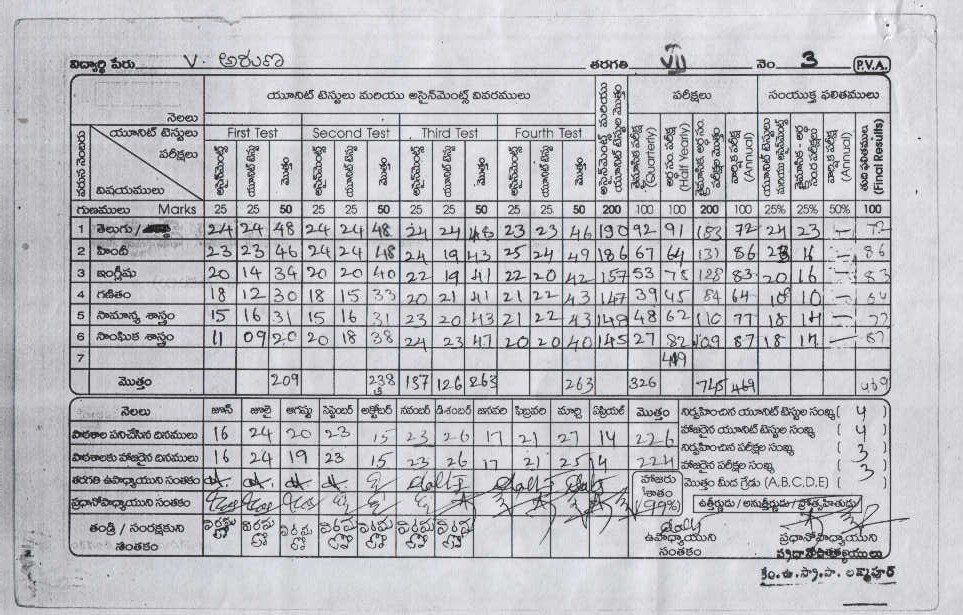 విద్యార్థి పేరు V. అరుణ తరగతి VII నెం 3 (P.V.A.)
యూనిట్ టెస్టులు మరియు అసైన్‌మెంట్స్ వివరములు పరీక్షలు సంయుక్త ఫలితములు
నెలలు
వరుస నెంబరు యూనిట్ టెస్టులు పరీక్షలు విషయములు First Test Second Test Third Test Fourth Test
అసైన్‌మెంట్స్ యూనిట్ టెస్టు మొత్తం అసైన్‌మెంట్స్ యూనిట్ టెస్టు మొత్తం అసైన్‌మెంట్స్ యూనిట్ టెస్టు మొత్తం అసైన్‌మెంట్స్ యూనిట్ టెస్టు మొత్తం (Quarterly) (Half Yearly) (Annual) (Annual) (Final Results)
గుణములు Marks 25 25 50 25 25 50 25 25 50 25 25 50 200 100 100 200 100 25% 25% 50% 100
1 తెలుగు / 24 24 48 24 24 48 24 24 48 23 23 46 190 92 91 183 72 24 23 — 72
2 హిందీ 23 23 46 24 24 48 24 19 43 25 24 49 186 67 64 131 86 16 — 86
3 ఇంగ్లీషు 20 14 34 20 20 40 22 19 41 22 20 42 157 53 75 128 83 20 16 — 83
4 గణితం 18 12 30 18 15 33 20 21 41 21 22 43 147 39 45 84 64 18 10 — 64
5 సామాన్య శాస్త్రం 15 16 31 15 16 31 23 20 43 21 22 43 148 48 62 110 77 18 14 — 77
6 సాంఘిక శాస్త్రం 11 09 20 20 18 38 24 23 47 20 20 40 145 27 82 109 87 18 14 — 87
7 419
మొత్తం 209 238 137 126 263 263 326 745 469 469
నెలలు జూన్ జూలై ఆగష్టు సెప్టెంబర్ అక్టోబర్ నవంబర్ డిశంబర్ జనవరి ఫిబ్రవరి మార్చి ఏప్రియల్ మొత్తం నిర్వహించిన యూనిట్ టెస్టుల సంఖ్య ( 4 )
పాఠశాల పనిచేసిన దినములు 16 24 20 23 15 23 26 17 21 27 14 226 హాజరైన యూనిట్ టెస్టుల సంఖ్య ( 4 )
నిర్వహించిన పరీక్షల సంఖ్య ( 3 )
పాఠశాలకు హాజరైన దినములు 16 24 19 23 15 23 26 17 21 25 14 224 హాజరైన పరీక్షల సంఖ్య ( 3 )
తరగతి ఉపాధ్యాయుని సంతకం హాజరు శాతం (99%) మొత్తం మీద గ్రేడు (A.B.C.D.E) ( )
ప్రధానోపాధ్యాయుని సంతకం ఉత్తీర్ణుడు / అనుత్తీర్ణుడు / ప్రోత్సహితుడు
తండ్రి / సంరక్షకుని సంతకం
ఉపాధ్యాయుని సంతకం ప్రధానోపాధ్యాయుని
ప్రధానోపాధ్యాయులు